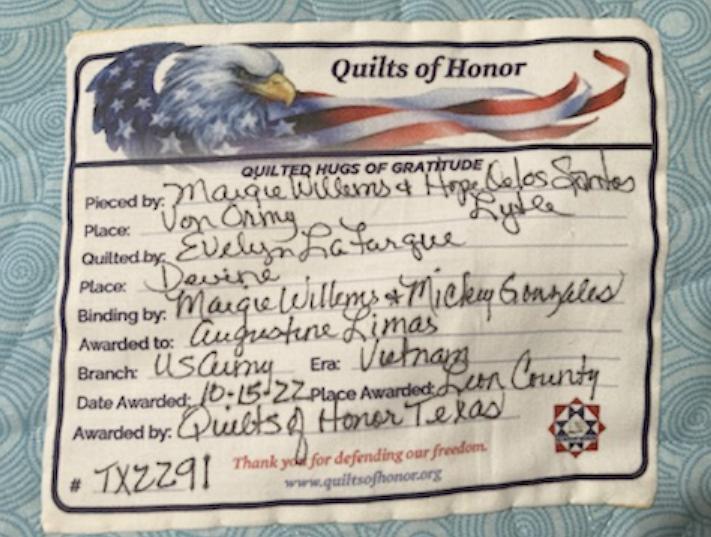 Quilts of Honor
QUILTED HUGS OF GRATITUDE
Pieced by: Margie Willems & Hope Delos Santos
Place: Von Ormy Lytle
Quilted by: Evelyn LaFargue
Place: Devine
Binding by: Margie Willems & Mickey Gonzales
Awarded to: Augustine Limas
Branch: US Army Era: Vietnam
Date Awarded: 10-15-22 Place Awarded: Leon County
Awarded by: Quilts of Honor Texas
Thank you for defending our freedom.
# TX2291 www.quiltsofhonor.org